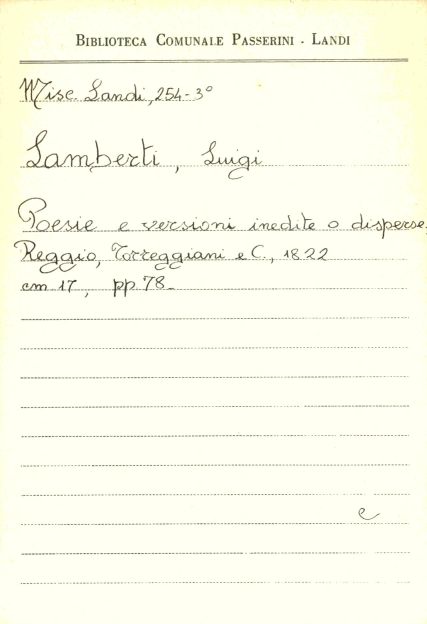 BIBLIOTECA COMUNALE PASSERINI - LANDI
Misc. Landi, 254-3°
Lamberti, Luigi
Poesie e versioni inedite o disperse.
Reggio, Torreggiani e C., 1822
cm 17, pp. 78_
e